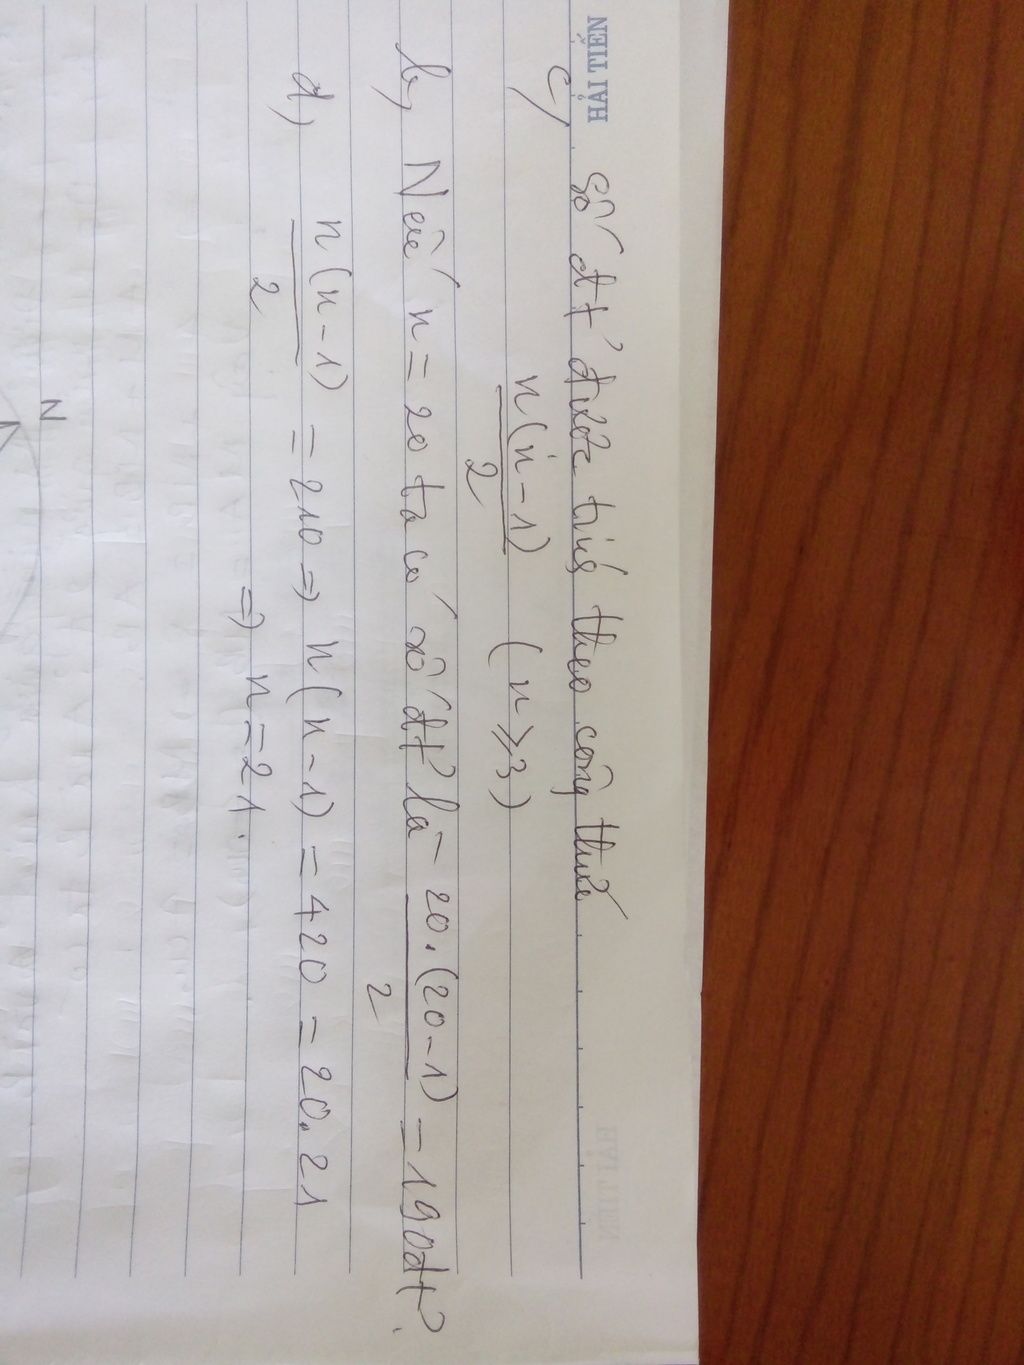 HẢI TIẾN
c, Số đt² được tính theo công thức
n(n-1)/2 (n ≥ 3)
b, Nếu n = 20 ta có số đt² là 20.(20-1)/2 = 190đt².
d, n(n-1)/2 = 210 => n(n-1) = 420 = 20.21
=> n = 21.
N